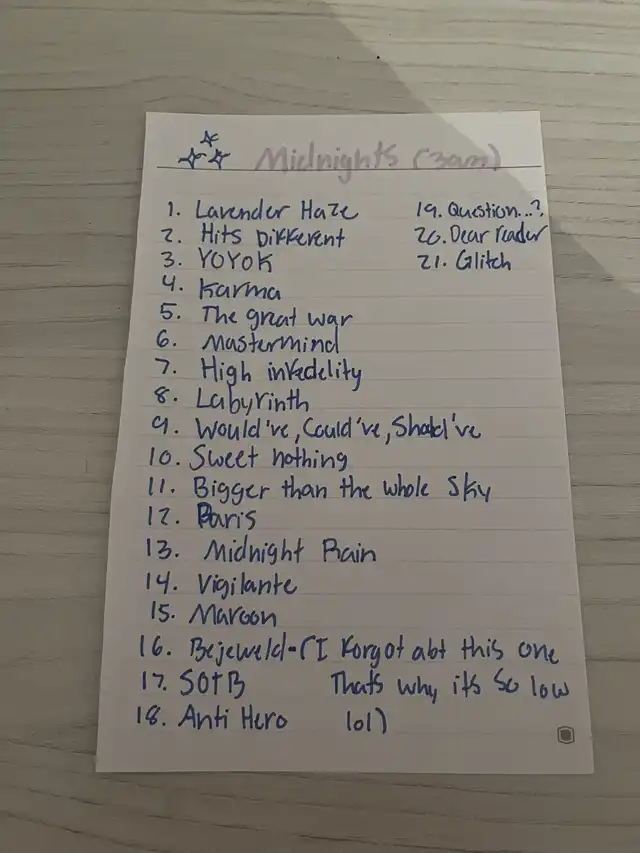 Midnights (3am)
1. Lavender Haze
2. Hits Different
3. YOYOK
4. Karma
5. The great war
6. Mastermind
7. High infedelity
8. Labyrinth
9. Would've, Could've, Should've
10. Sweet nothing
11. Bigger than the whole sky
12. Paris
13. Midnight Rain
14. Vigilante
15. Maroon
16. Bejeweld-(I forgot abt this one
17. SOTB Thats why its so low
18. Anti Hero lol)
19. Question...?
20. Dear reader
21. Glitch